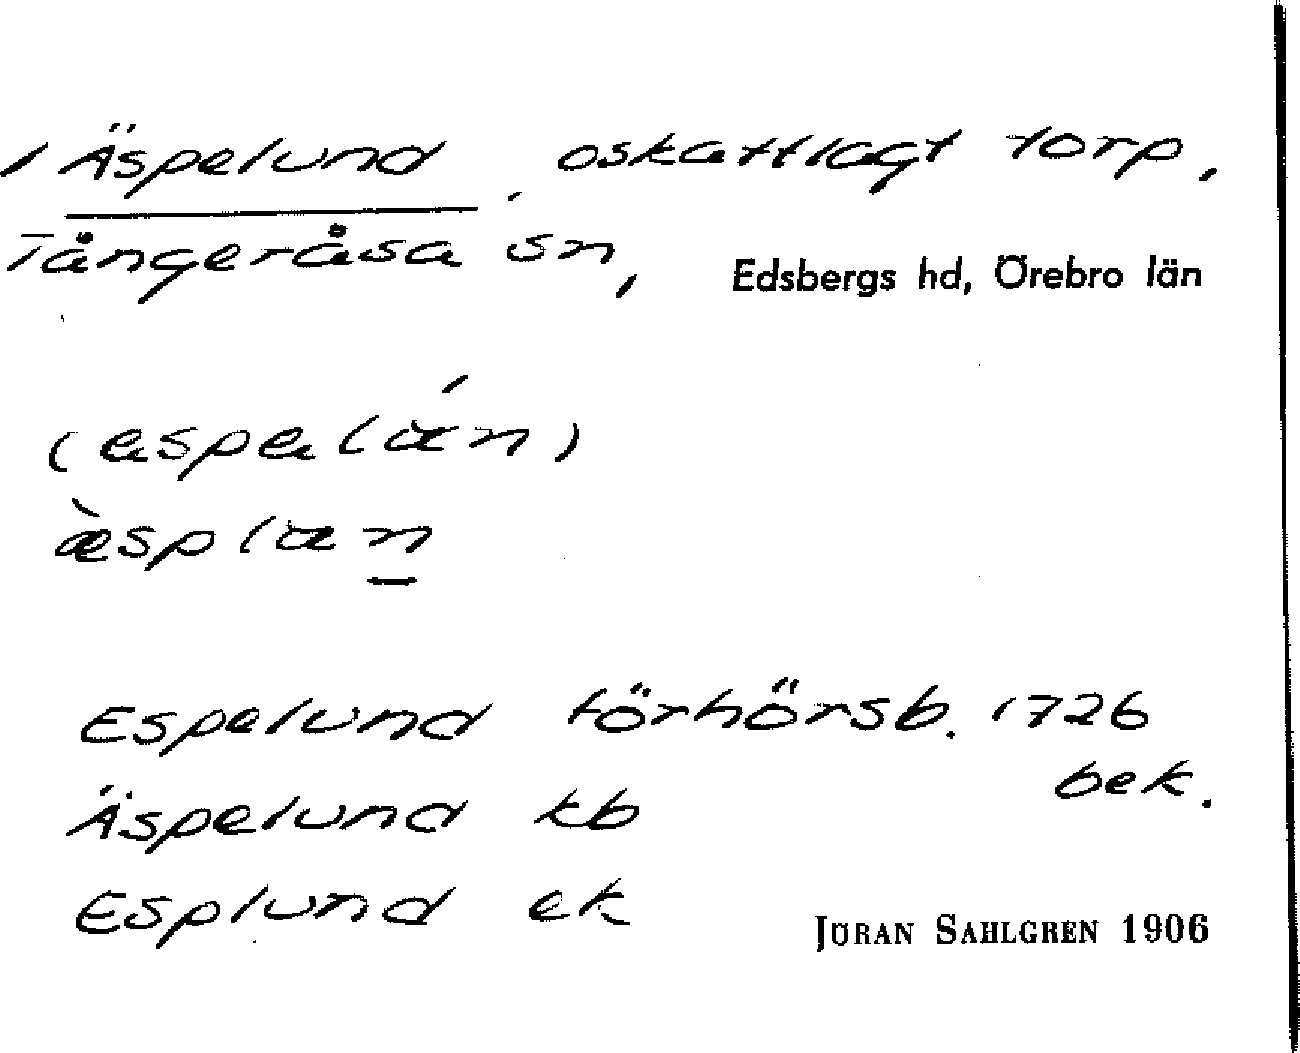 Äspelund, oskattlagt torp,
Tångeråsa sn, Edsbergs hd, Örebro län
Espelund förhörsb. 1726
bek.
Äspelund kb
Esplund ek
JÖRAN SAHLGREN 1906